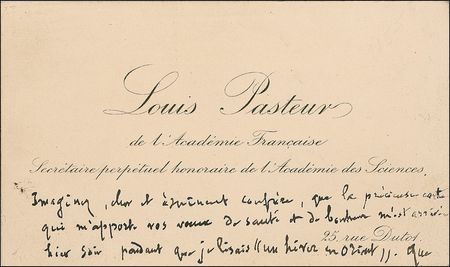 Louis Pasteur
de l'Académie Française
Secrétaire perpétuel honoraire de l'Académie des Sciences.
Imaginez, cher et éminent confrère, que la précieuse carte
qui m'apporte vos vœux de santé et de bonheur m'est arrivée
hier soir pendant que je lisais "un hiver en Orient". Que
25, rue Dutot.